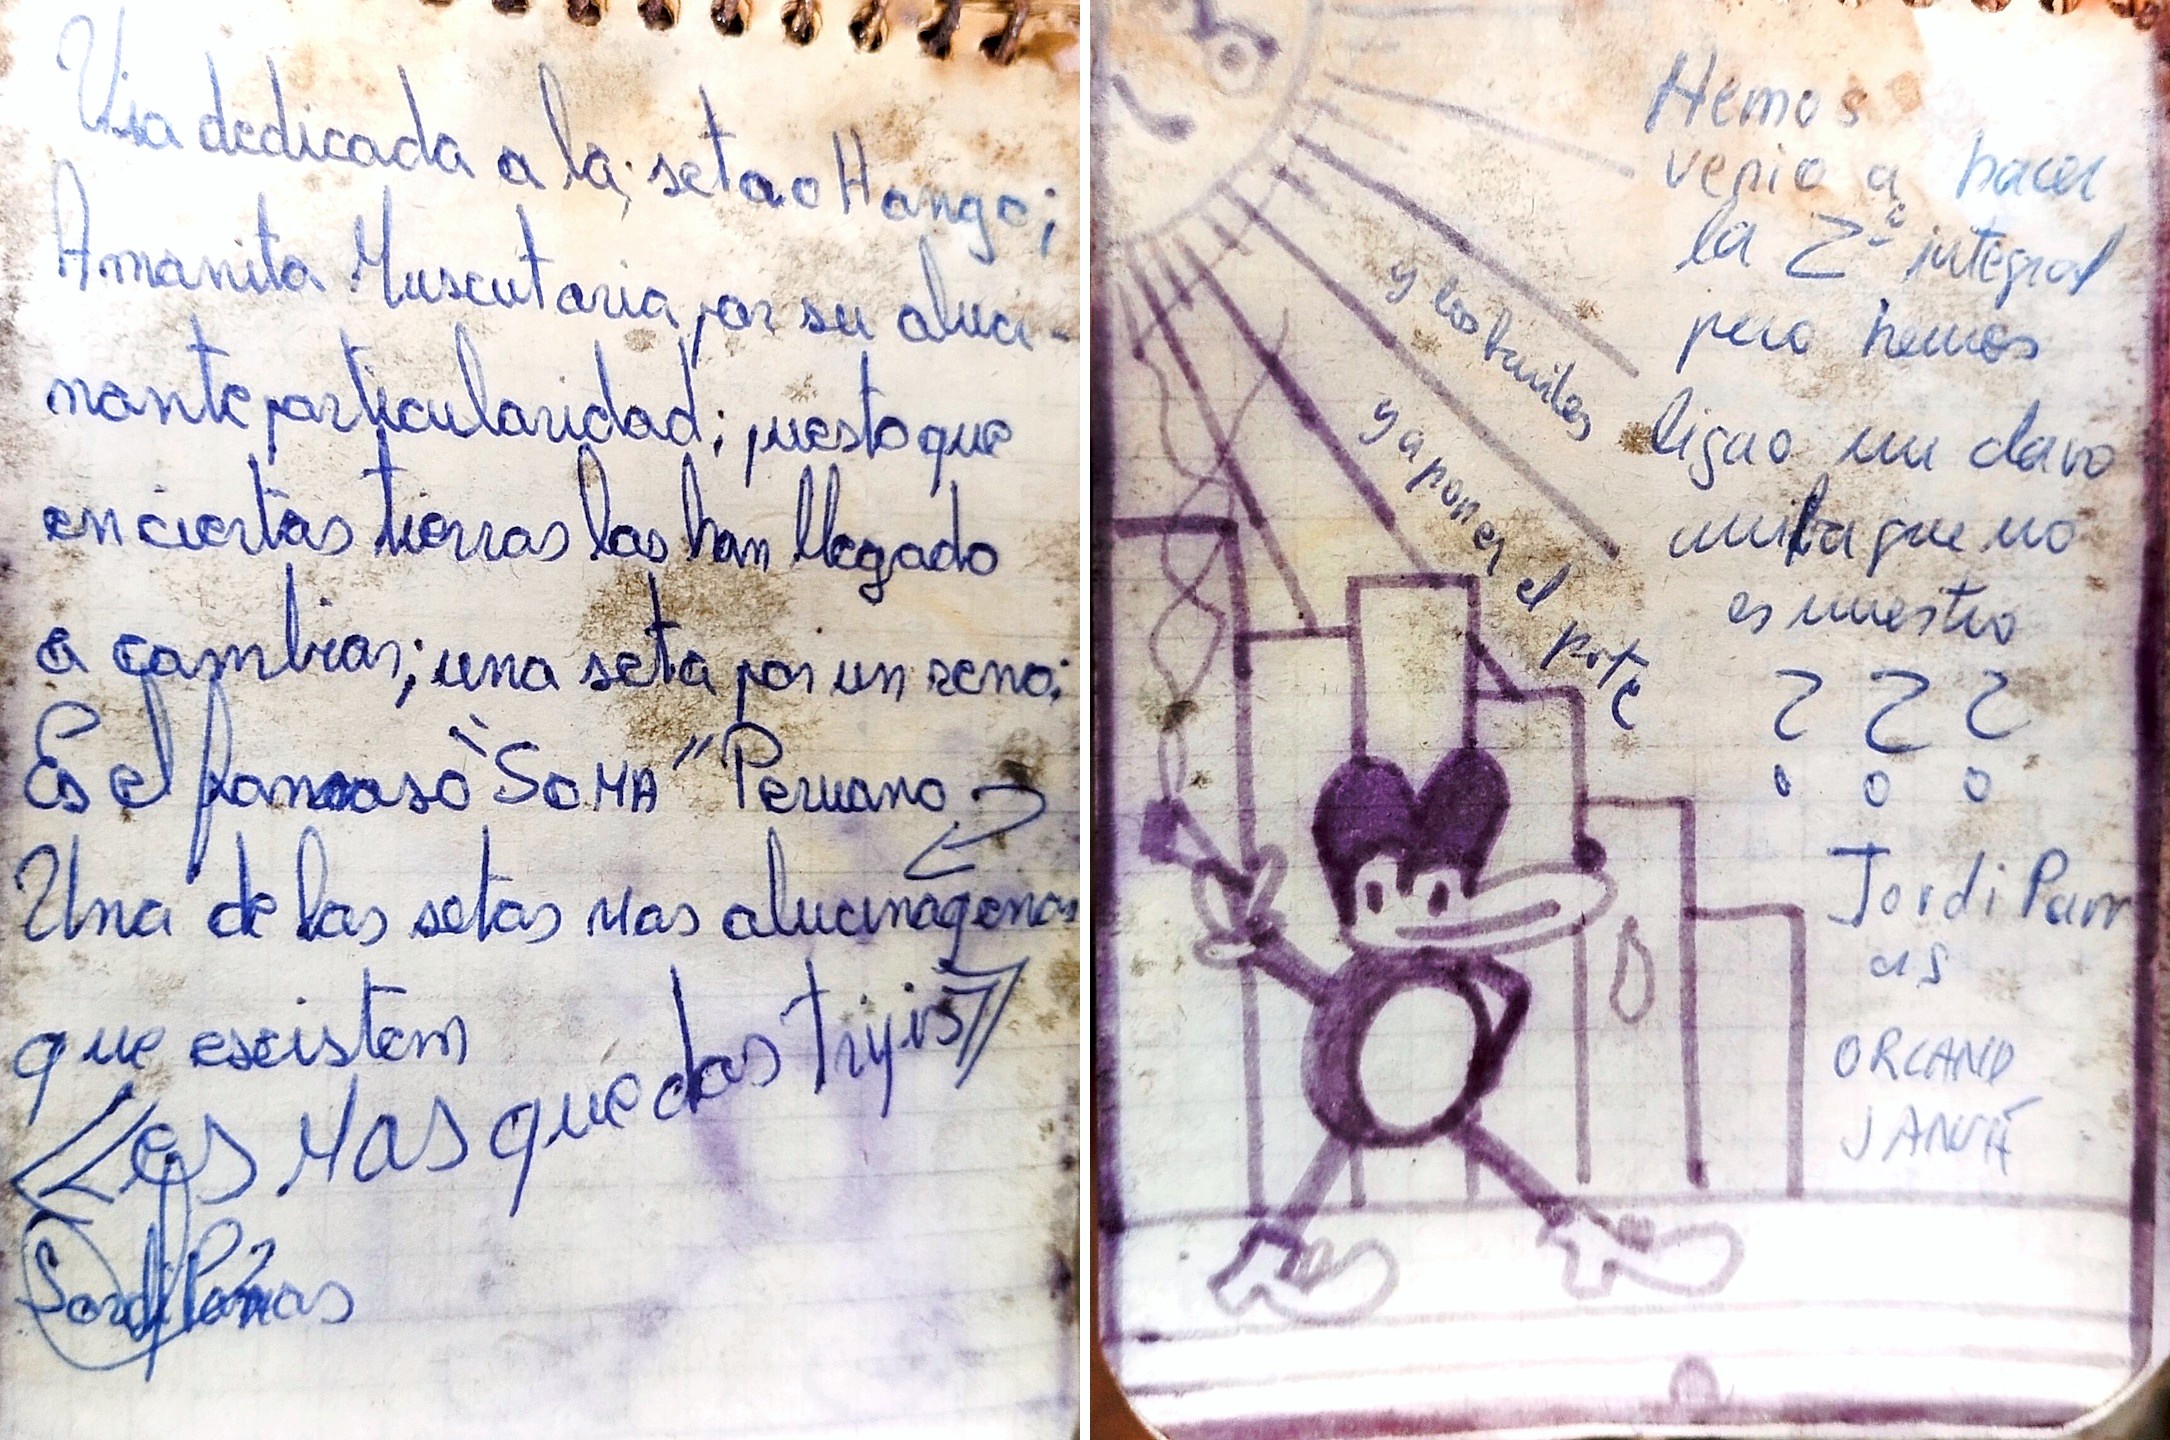 Via dedicada a la; seta o Hongo;
Amanita Muscutaria por su aluci-
nante particularidad; puesto que
en ciertas tierras las han llegado
a cambiar; una seta por un reno;
Es el famoso "SOMA" Peruano
Una de las setas mas alucinógenas
que escistem
Los mas que das tripis
Jordi Parras
Hemos
venio a hacer
la 2ª integral
pero hemos
ligao un clavo
que no
es nuestro
???
Jordi Parr
as
ORLAND
JANÉ
y los buriles
y a poner el pote